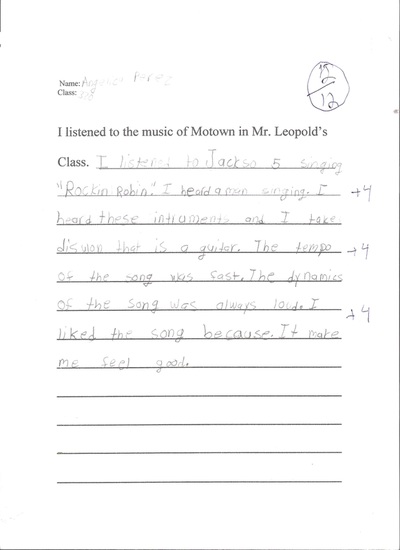 Name: Angelica Perez
Class:
12
12
I listened to the music of Motown in Mr. Leopold's
Class. I listenst to Jackso 5 singing
"Rockin Robin." I heard a man singing. I +4
heard these intruments and I take
disuion that is a guitar. The tempo +4
of the song was fast. The dynamics
of the song was always loud. I +4
liked the song because. It make
me feel good.